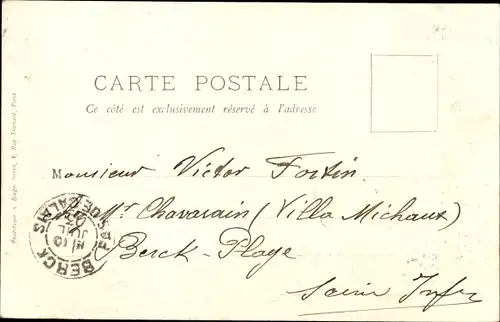 CARTE POSTALE
Ce côté est exclusivement réservé à l'adresse
Monsieur Victor Fortin
Mr Chavarain (Villa Michaux)
Berck-Plage
Seine Infre
BERCK
PAS-DE-CALAIS
10
JUIL